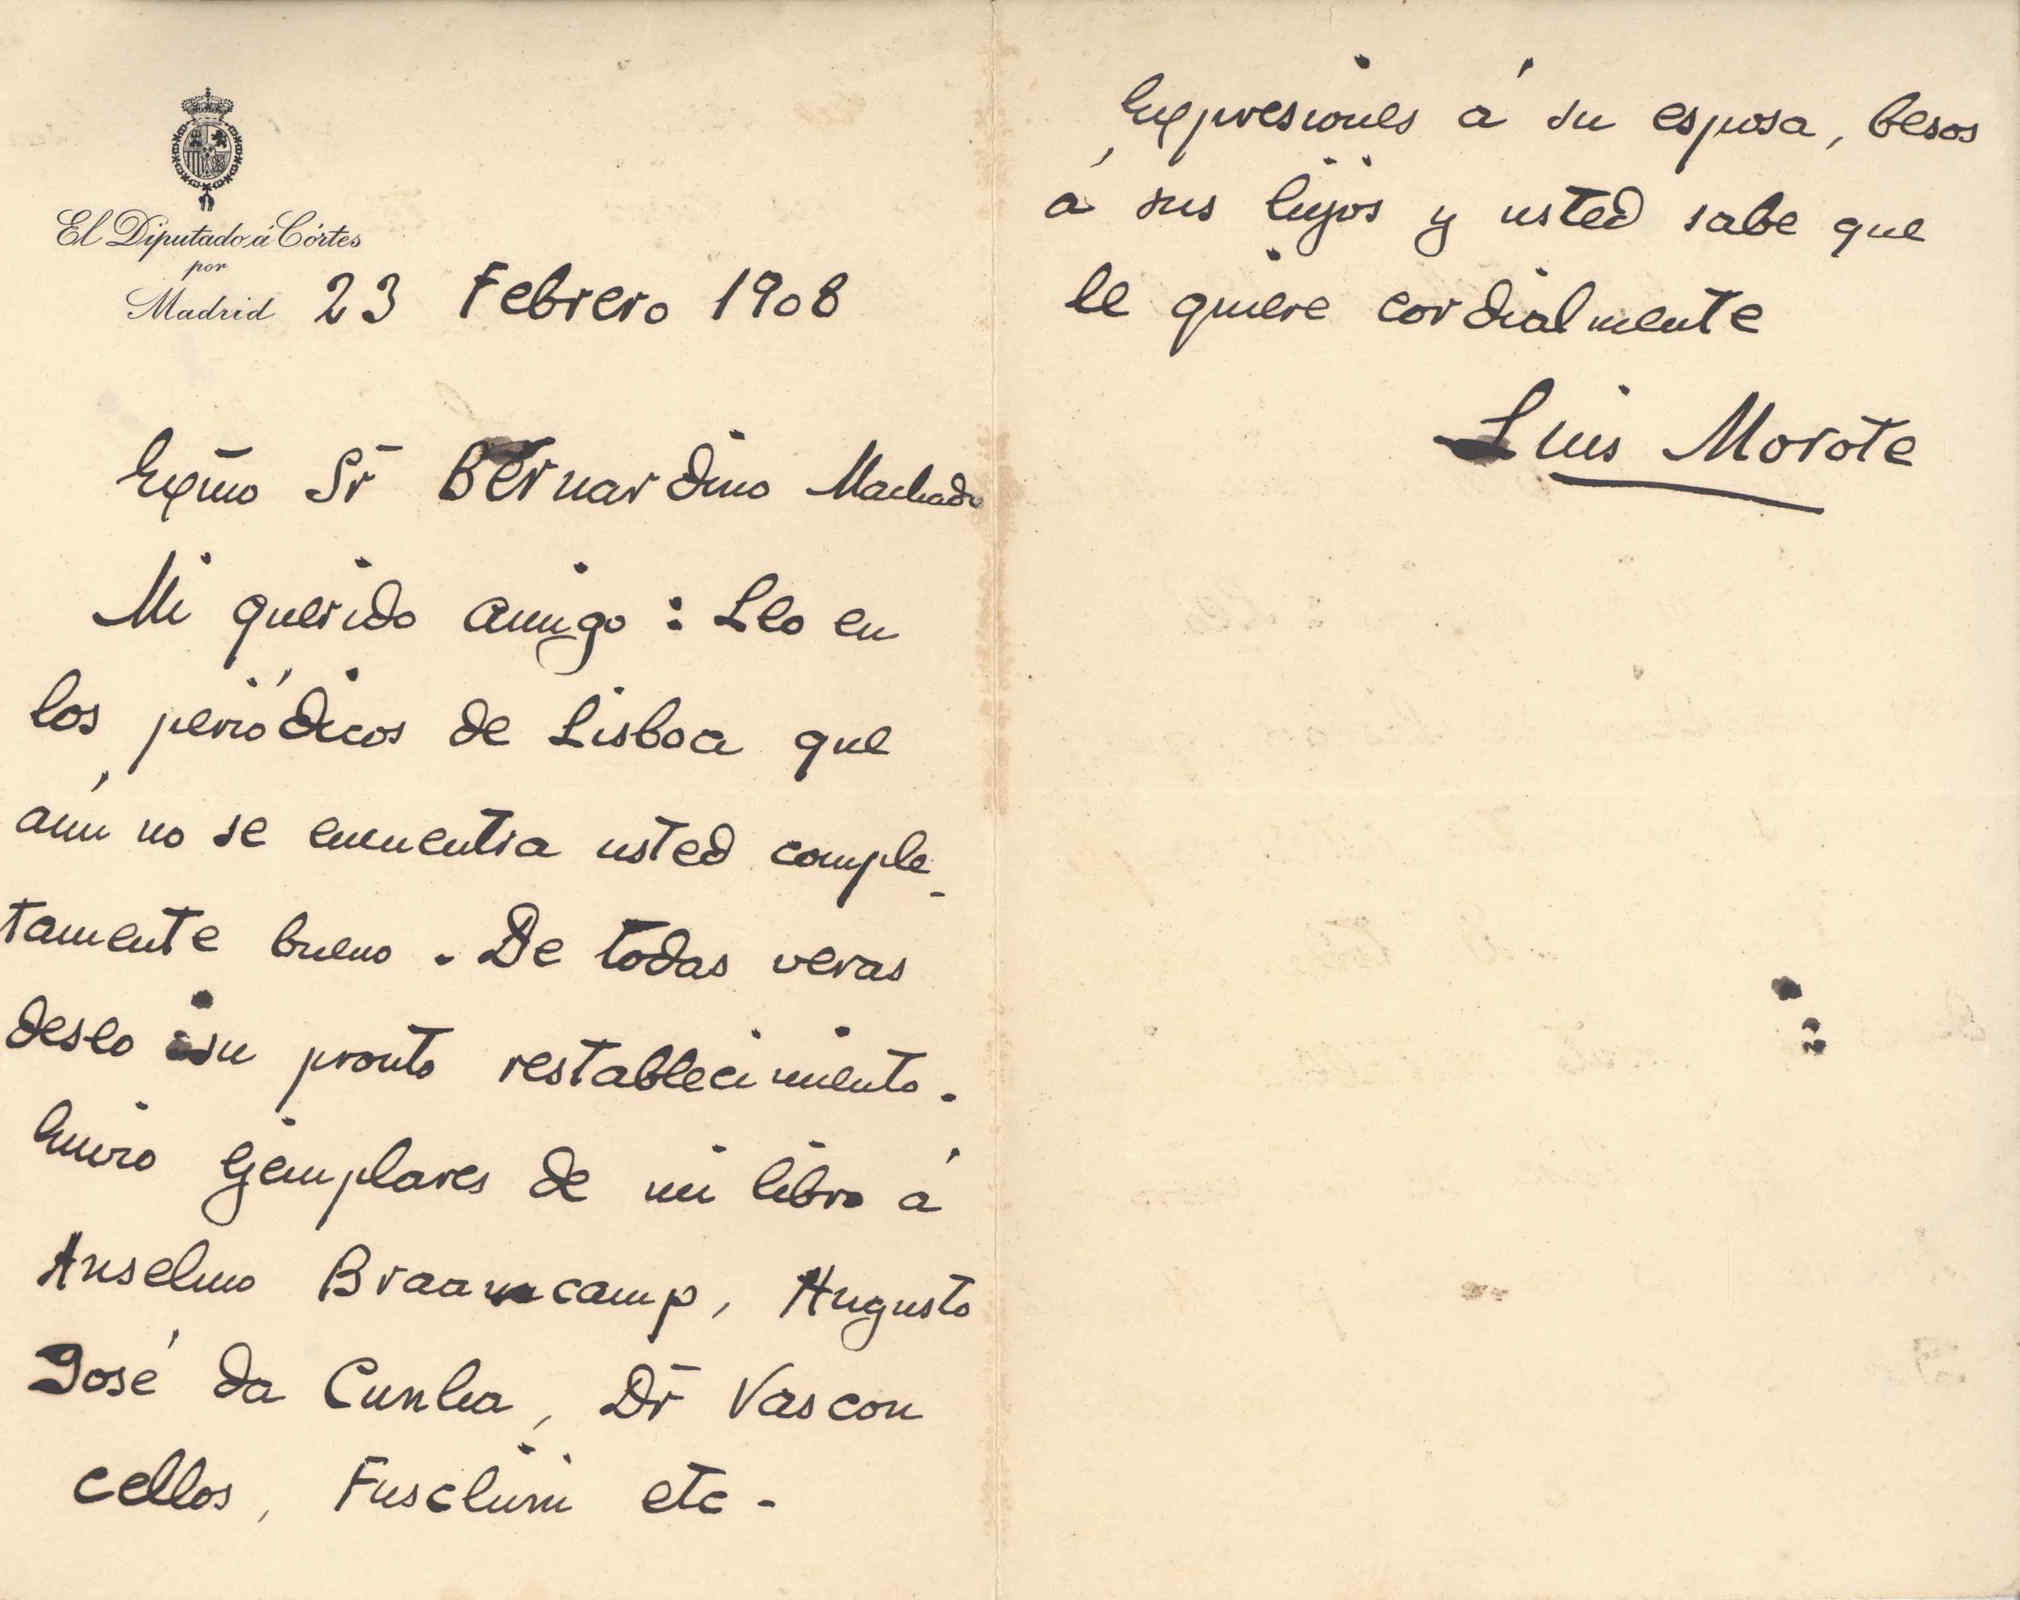 El Diputado á Córtes
por
Madrid 23 Febrero 1908
Exmo Sr Bernardino Machado
Mi querido amigo: Leo en
los periódicos de Lisboa que
aún no se encuentra usted comple-
tamente bueno. De todas veras
deseo su pronto restablecimiento.
Envio ejemplares de mi libro á
Anselmo Braamcamp, Augusto
José da Cunha, Dr Vascon
cellos, Fuschini etc.
Expresiones á su esposa, besos
á sus hijos y usted sabe que
le quiere cordialmente
Luis Morote